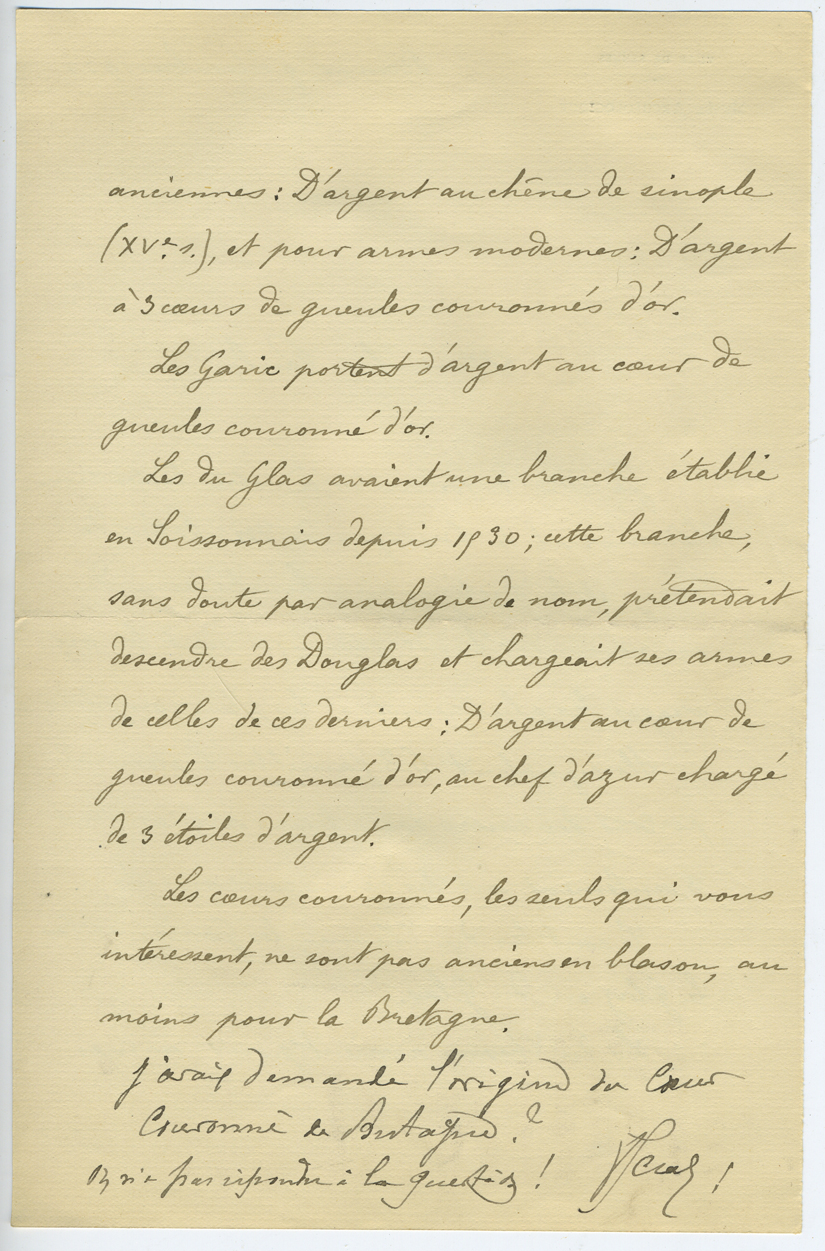 anciennes : D'argent au chêne de sinople
(XVe. s.), et pour armes modernes : D'argent
à 3 cœurs de gueules couronnés d'or.
Les Garic portent d'argent au cœur de
gueules couronné d'or.
Les du Glas avaient une branche établie
en Soissonnais depuis 1530 ; cette branche,
sans doute par analogie de nom, prétendait
descendre des Douglas et chargeait ses armes
de celles de ces derniers : D'argent au cœur de
gueules couronné d'or, au chef d'azur chargé
de 3 étoiles d'argent.
Les cœurs couronnés, les seuls qui vous
intéressent, ne sont pas anciens en blason, au
moins pour la Bretagne.
j'avais demandé l'origine du Cœur
Couronné de Bretagne.?
On n'a pas répondu à la question !